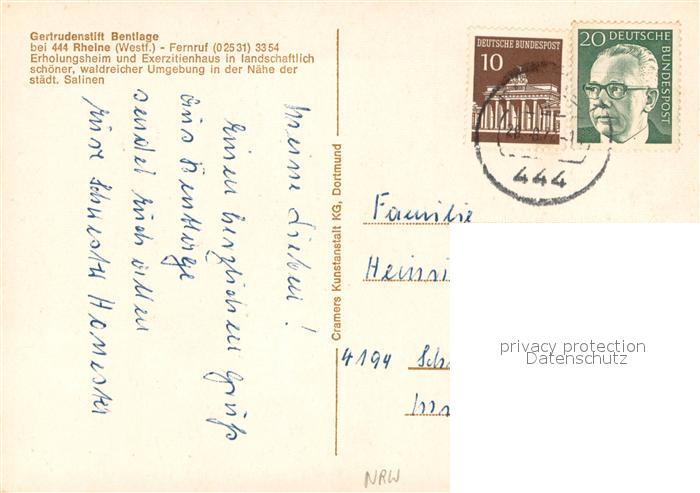 Gertrudenstift Bentlage
bei 444 Rheine (Westf.) - Fernruf (02531) 3354
Erholungsheim und Exerzitienhaus in landschaftlich
schöner, waldreicher Umgebung in der Nähe der
städt. Salinen
meine Lieben!
Einen herzlichen Gruß
aus Bentlage
sendet euch allen
eure Schwester
Cramers Kunstanstalt KG, Dortmund
10
DEUTSCHE BUNDESPOST
20
DEUTSCHE BUNDESPOST
444
Familie
Heinri
4194 Sch
NRW
privacy protection
Datenschutz